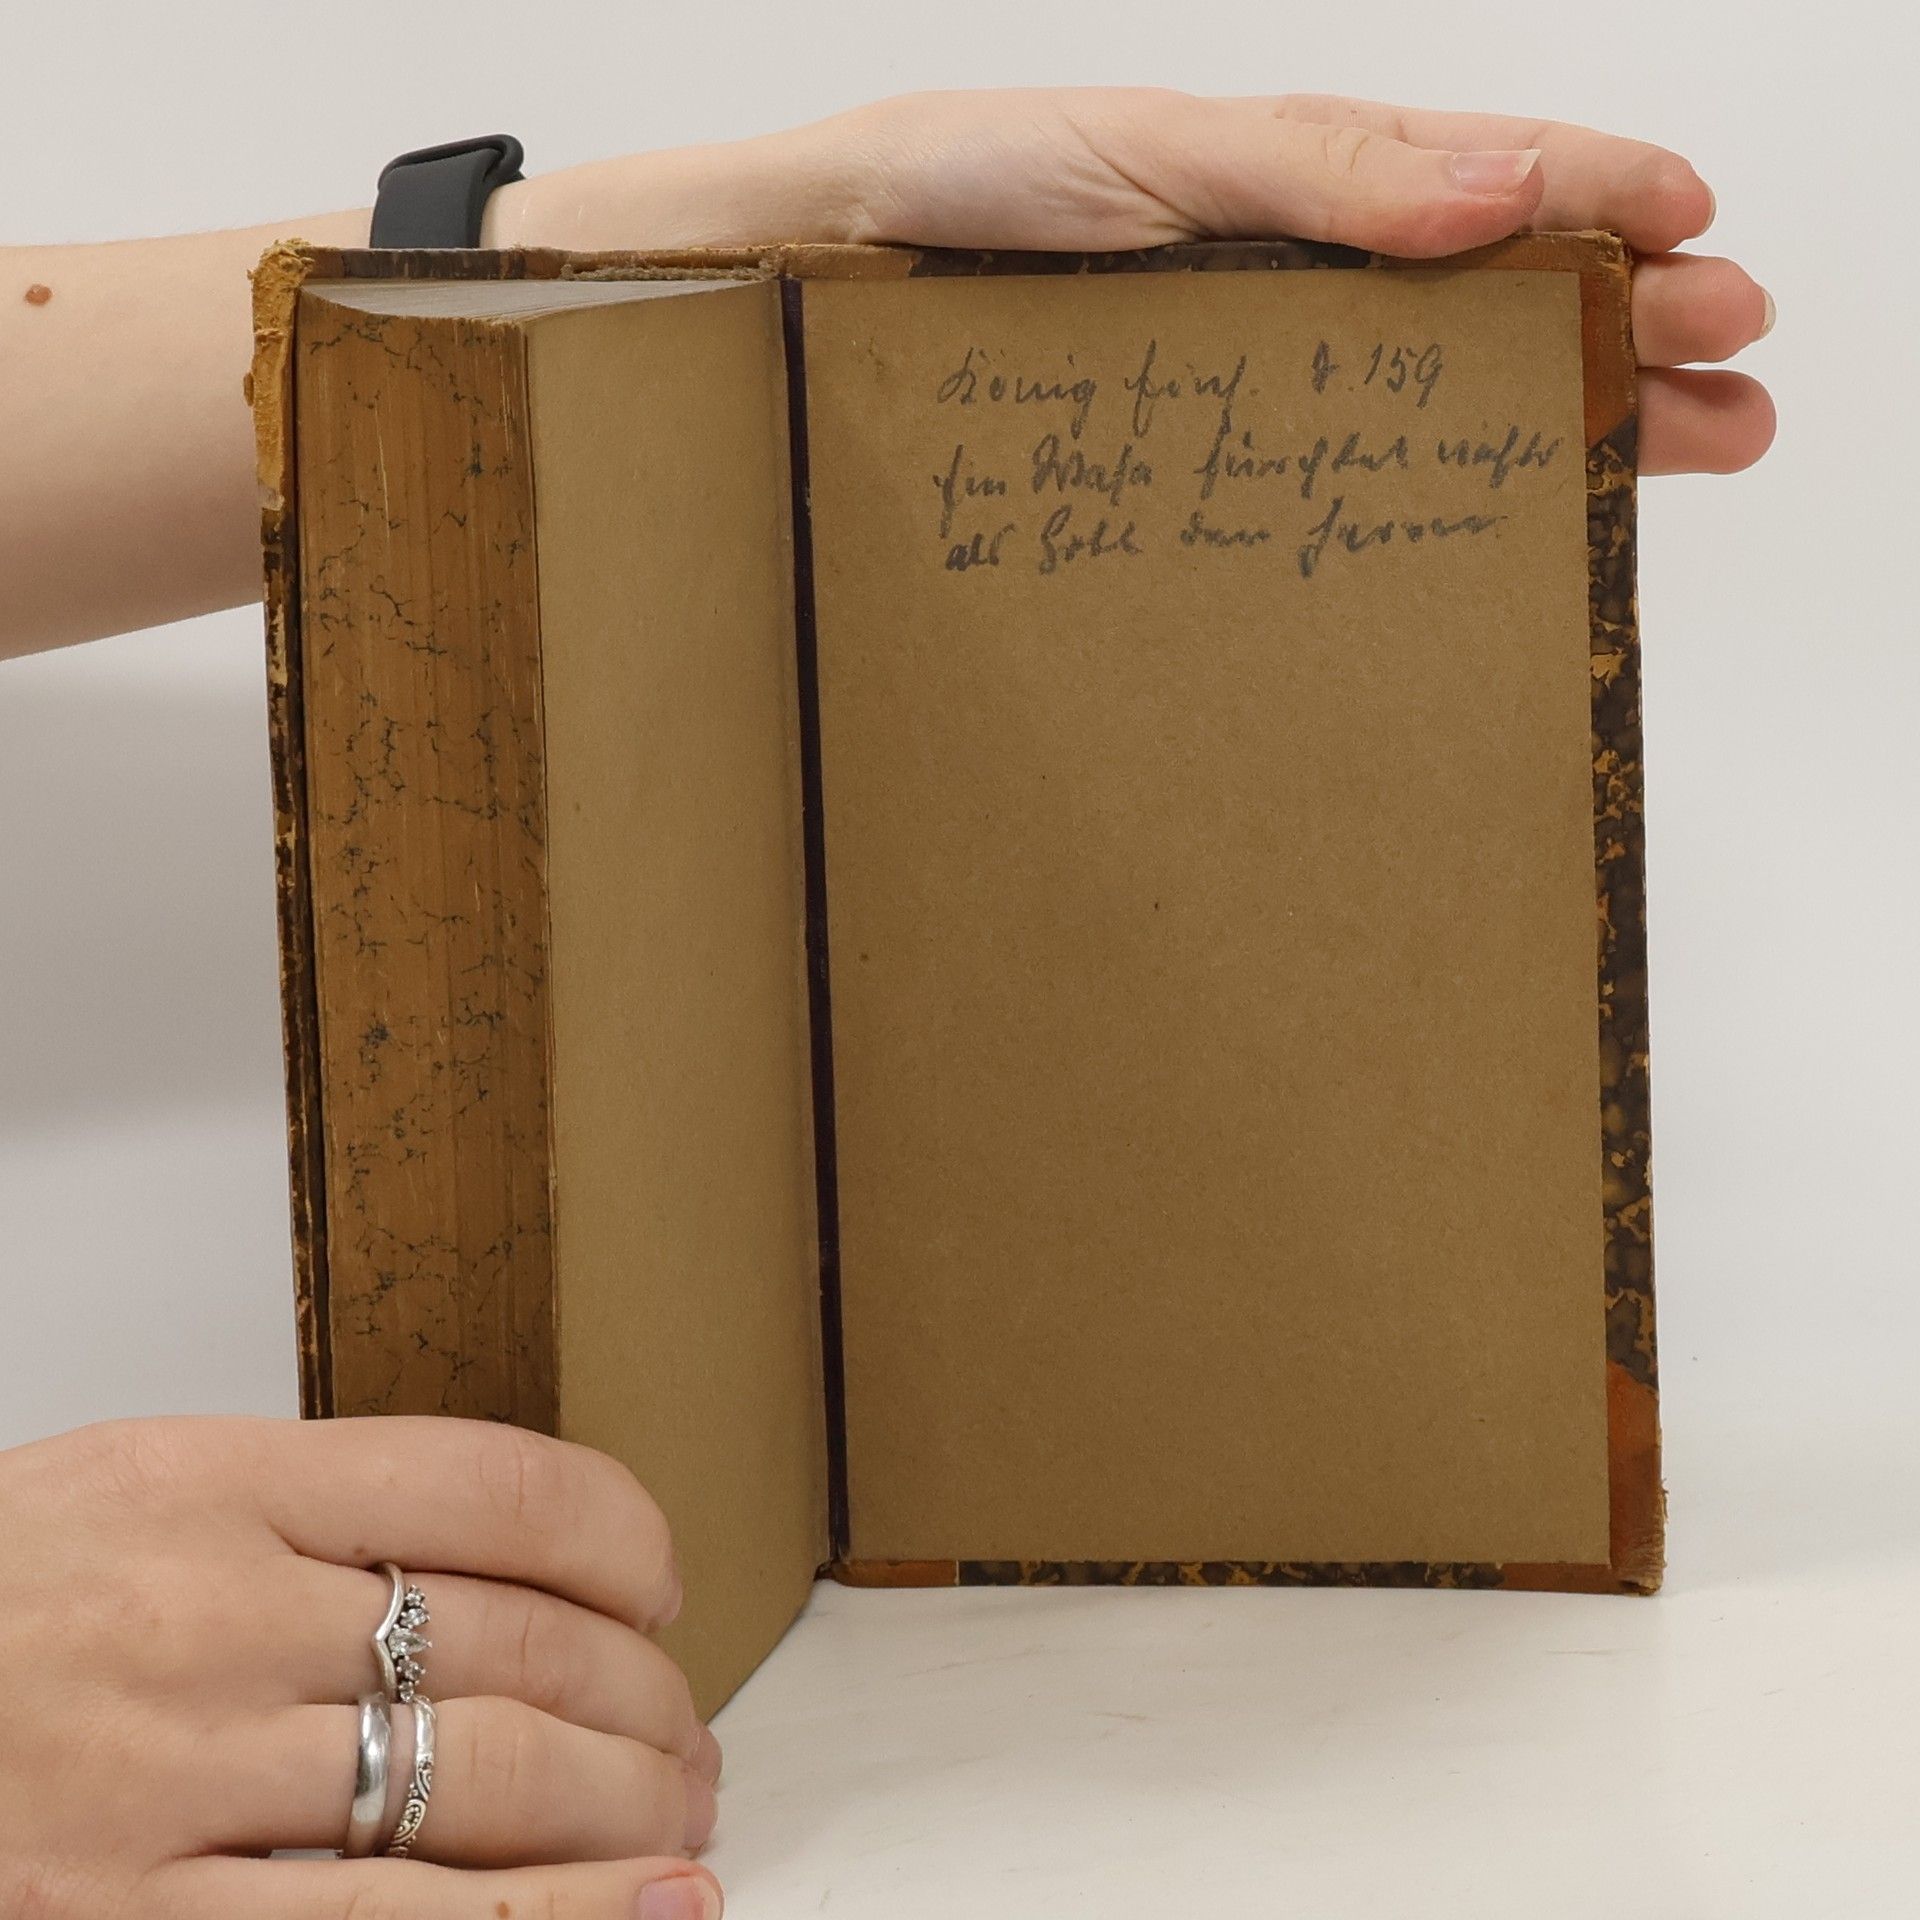 König Erich. S. 159
Ein Wasa fürchtet nichts
als Gott den Herrn